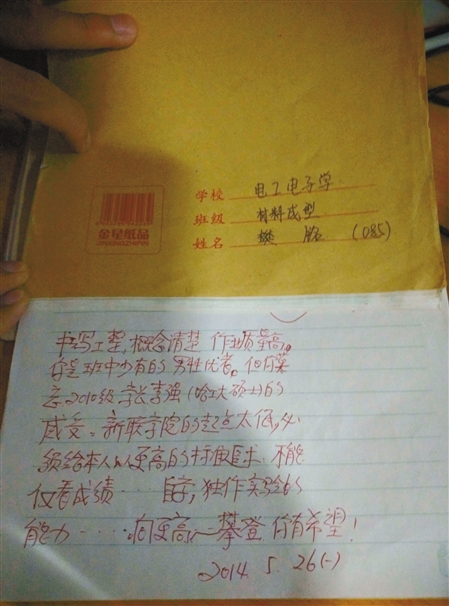 金星纸品
学校 电工电子学
班级 材料成型
姓名 樊 (085)
书写工整,概念清楚 作业质量高。
你是班中少有的男性优者。但有莫
忘2010级学长李强(哈工大硕士)的
感受。新联学院的起点太低,必
须给本人以更高的标准要求 不能
仅看成绩…… 自学,独作实验的
能力……向更高一攀登 你有希望!
2014 5. 26(一)